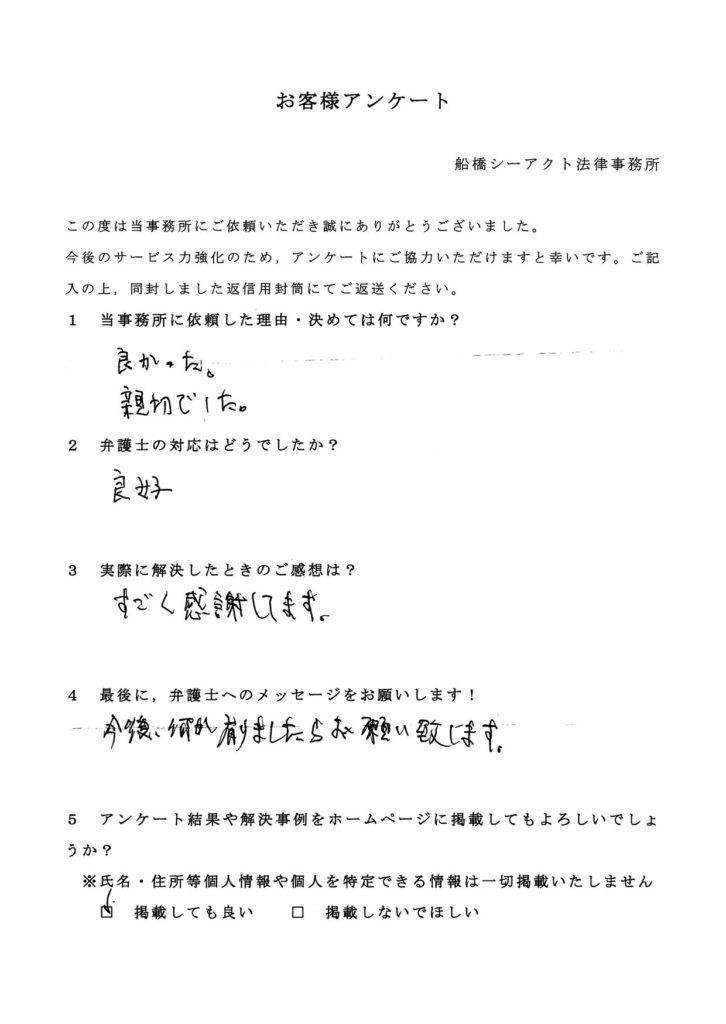 お客様アンケート
船橋シーアクト法律事務所
この度は当事務所にご依頼いただき誠にありがとうございました。
今後のサービス力強化のため，アンケートにご協力いただけますと幸いです。ご記
入の上，同封しました返信用封筒にてご返送ください。
１　当事務所に依頼した理由・決めては何ですか？
良かった。
親切でした。
２　弁護士の対応はどうでしたか？
良好
３　実際に解決したときのご感想は？
すごく感謝してます。
４　最後に，弁護士へのメッセージをお願いします！
今後、何か有りましたらお願い致します。
５　アンケート結果や解決事例をホームページに掲載してもよろしいでしょ
うか？
※氏名・住所等個人情報や個人を特定できる情報は一切掲載いたしません
☑　掲載しても良い　　□　掲載しないでほしい